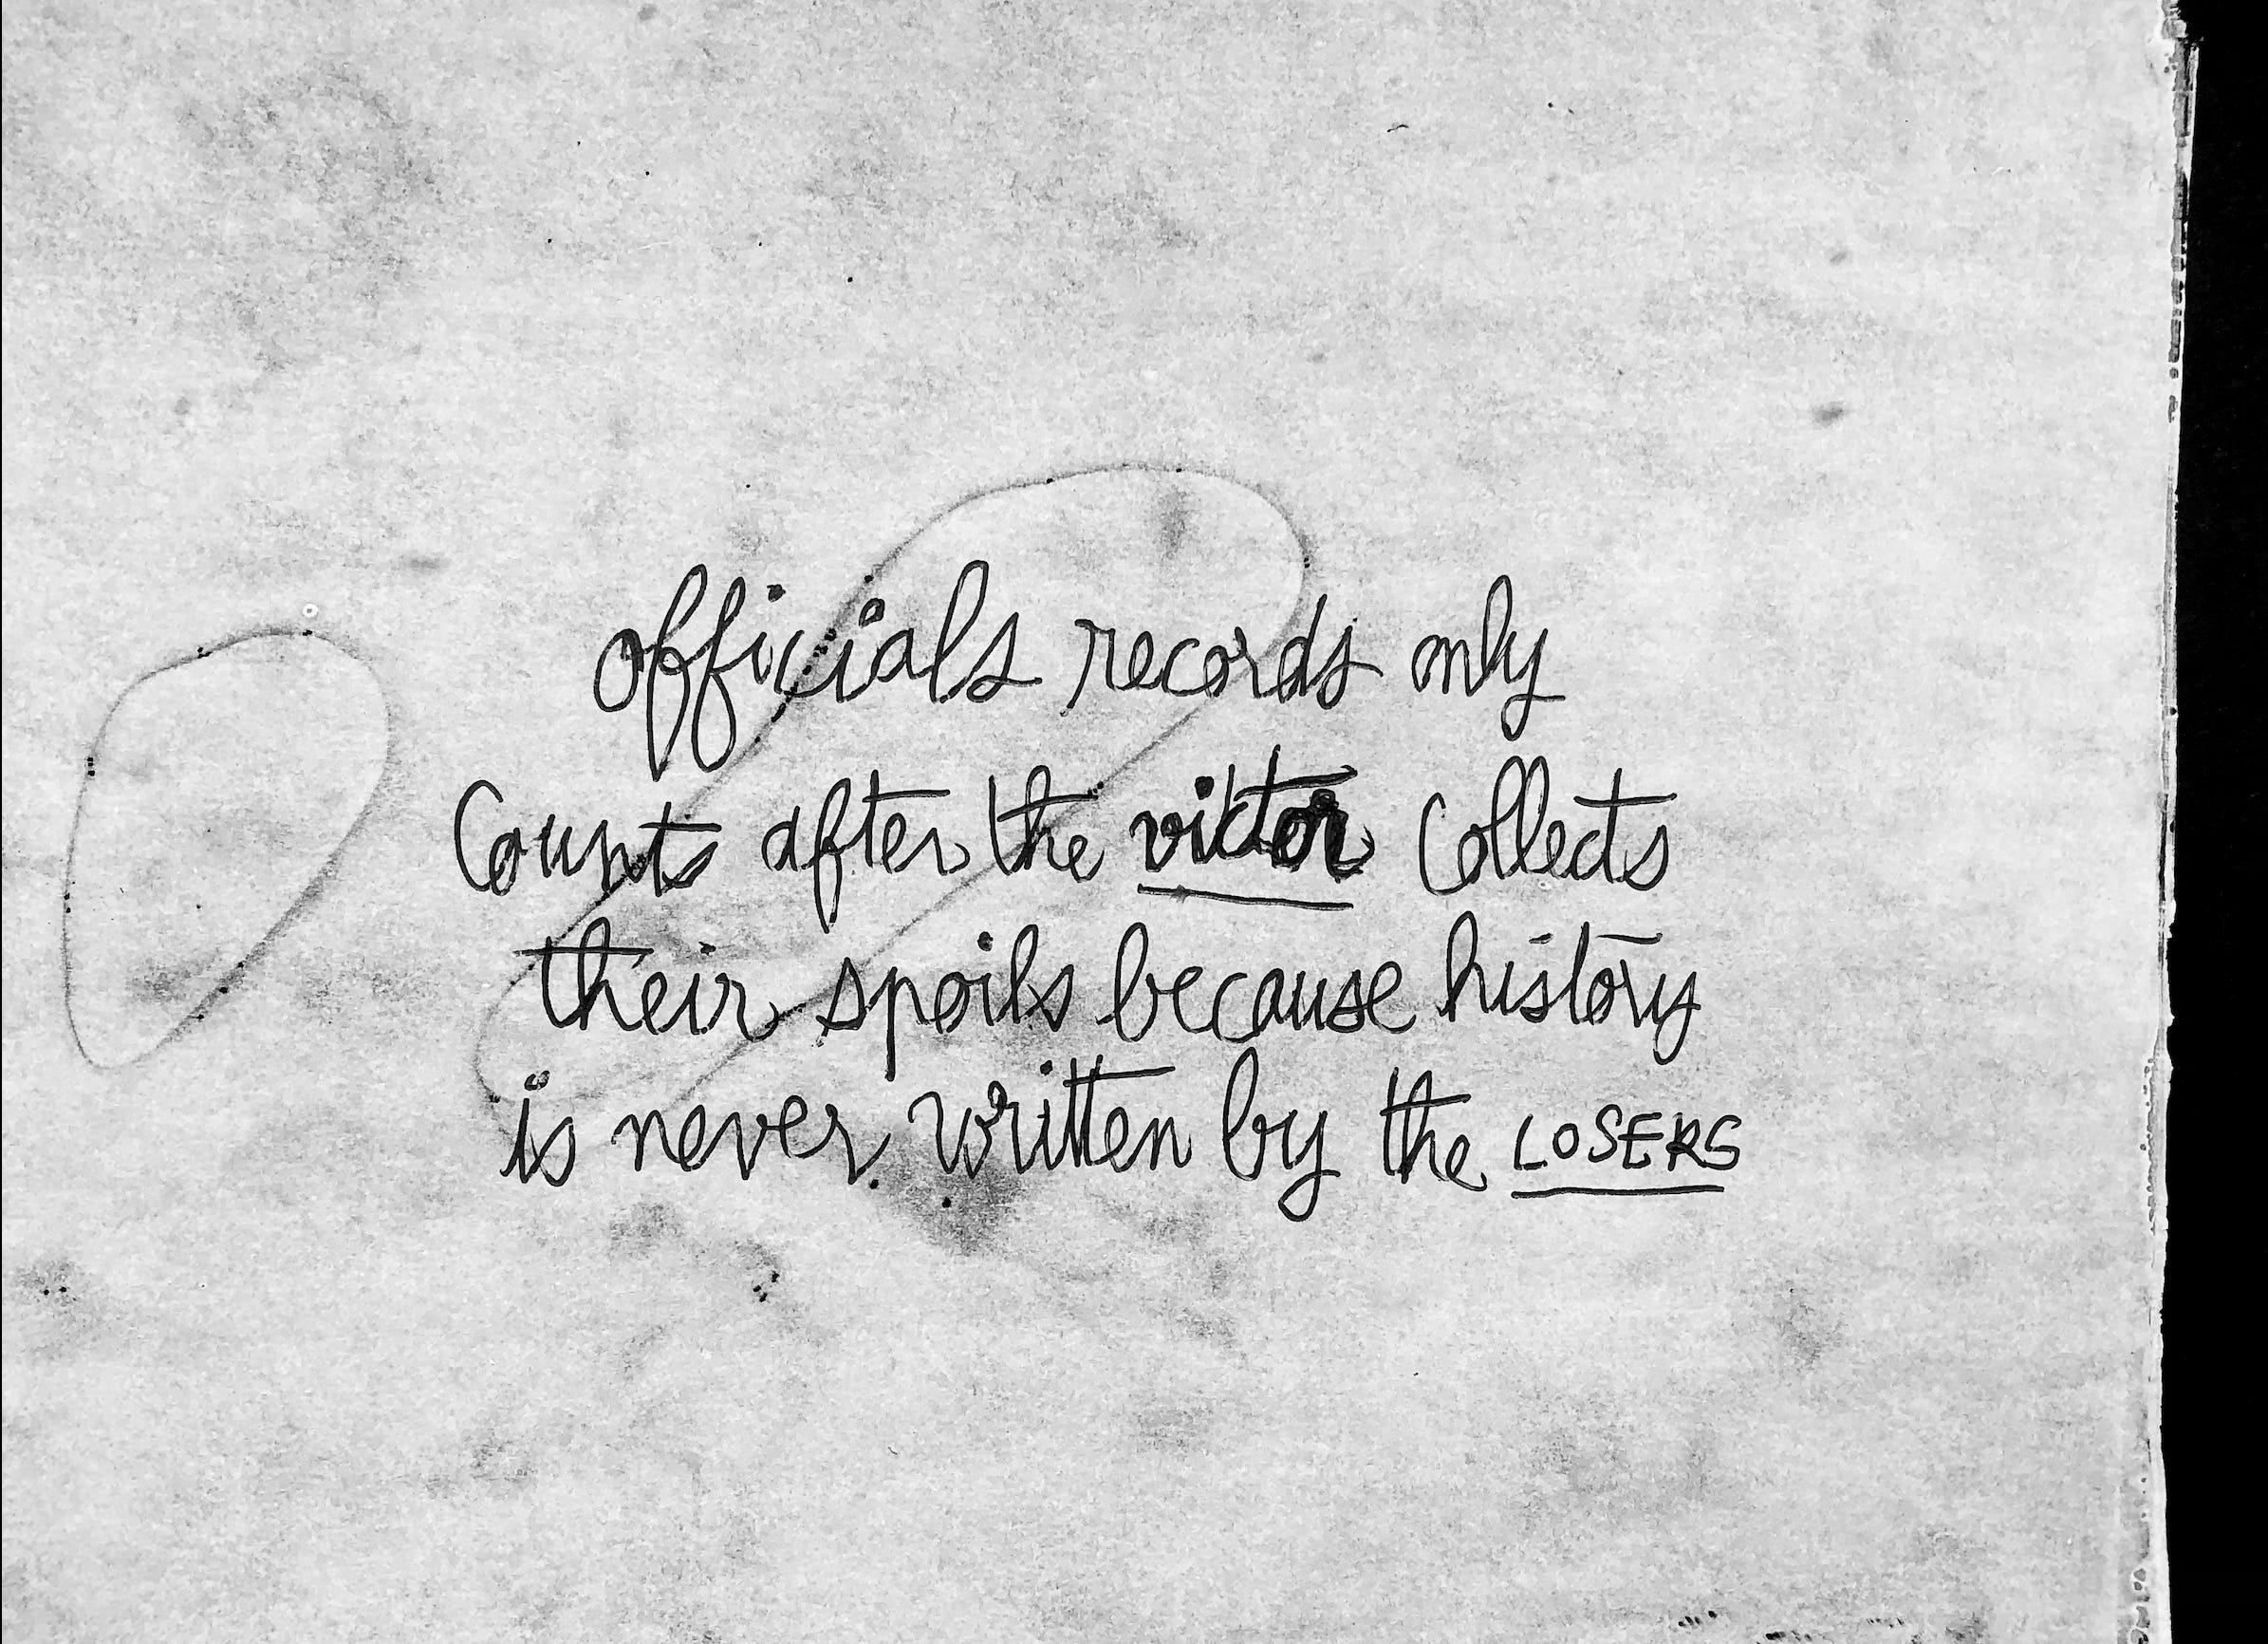 officials records only
Counts after the victor collects
their spoils because history
is never written by the LOSERS